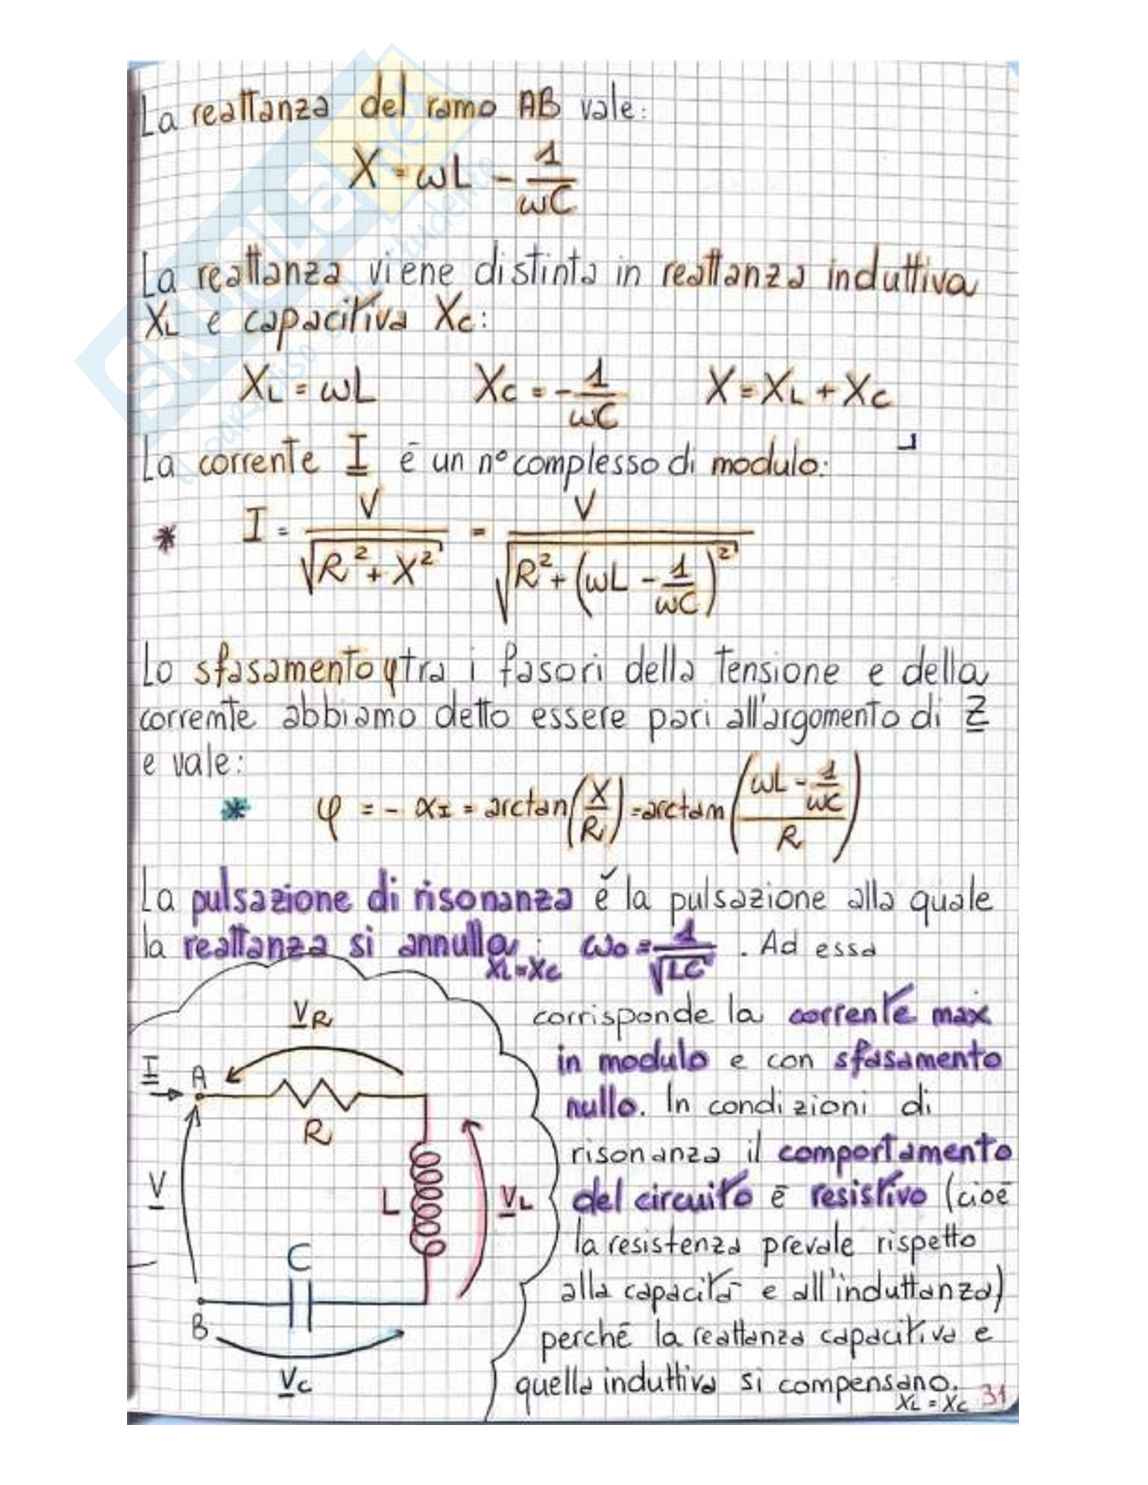 La reattanza del ramo AB vale:
X = ωL - 1/ωC
La reattanza viene distinta in reattanza induttiva
XL e capacitiva Xc:
XL = ωL    Xc = - 1/ωC    X = XL + Xc
La corrente I è un n° complesso di modulo:
* I = V/√(R² + X²) = V/√(R² + (ωL - 1/ωC)²)
Lo sfasamento φ tra i fasori della tensione e della
corrente abbiamo detto essere pari all'argomento di Z
e vale:
* φ = - αI = arctan(X/R) = arctan((ωL - 1/ωC)/R)
La pulsazione di risonanza è la pulsazione alla quale
la reattanza si annulla: ω0 = 1/√LC . Ad essa
XL = Xc
corrisponde la corrente max
in modulo e con sfasamento
nullo. In condizioni di
risonanza il comportamento
del circuito è resistivo (cioè
la resistenza prevale rispetto
alla capacità e all'induttanza)
perché la reattanza capacitiva e
quella induttiva si compensano.
XL = Xc
31
VR
I
A
R
V
L
VL
C
B
Vc
skuola.net